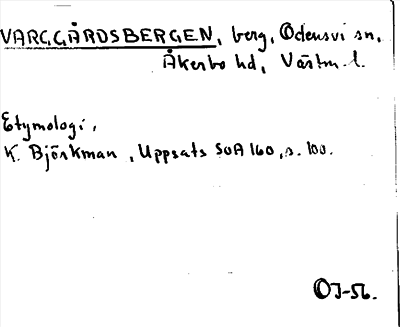 VARGGÅRDSBERGEN, berg, Odensvi sn,
Åkerbo hd, Västm. l.
Etymologi,
K. Björkman, Uppsats SOA 160, s. 100.
OJ-56.